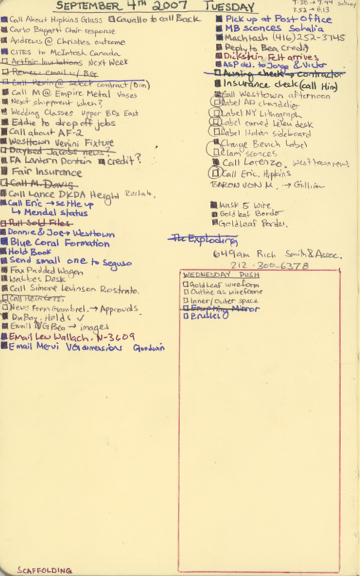 SEPTEMBER 4TH 2007 TUESDAY
Call About Hopkins Glass
Cavallo to call Back
Carlo Bugatti Chair response
Andrews @ Christies outcome
CITES to McIntosh Canada
Artfair Invitations Next Week
Renew email w/
Call Kevin @ select contract/
Call M @ Empire Metal Vases
Next shipment when?
Wedding Glasses Upper BCs East
Eddie to drop off jobs
Call about AF-2
Westtown Venini Fixture
Daybed Jacobs news?
FA Lantern Denton
Credit?
Fair Insurance
Call M. Davis
Call Lance DKDA Height
Call Eric → setteup
→ Mendel status
Pull Sold Files
Donnie & Joe → Westtown
Blue Coral Formation
Hold Book
Send small one to Seguso
Fax Padded Wagon
Call Simone Levinson Rostrato
News From Grambrel → Approvals
Dubay. Holds ✓
Email → images
Email Lew Wallach. N-3609
Email Mervi VG dimensions
Pick up at Post Office
MB sconces
Machtash (416) 252-3745
Reply to Bea Credit
Dickstein Felt arrives
ASP del. to Jorge & Victor
Awning check → contractor
Insurance check (call Him)
Call Westtown afternoon
Label AD chandelier
Label NY Lithograph
Label carved Leleu desk
Label Italian sideboard
Change Bench Label
sconces
Call Lorenzo. Westtown rent
Call Eric, Hopkins
BARON VON M. → Gillian
Mask 5 Wire
Goldleaf Border
Goldleaf Border.
The Exploding
649am Rich Smith & Assoc.
212-300-6378
WEDNESDAY PUSH
Goldleaf wireform
Outline as wireframe
Inner/outer space
Mirror
Brussel O
SCAFFOLDING